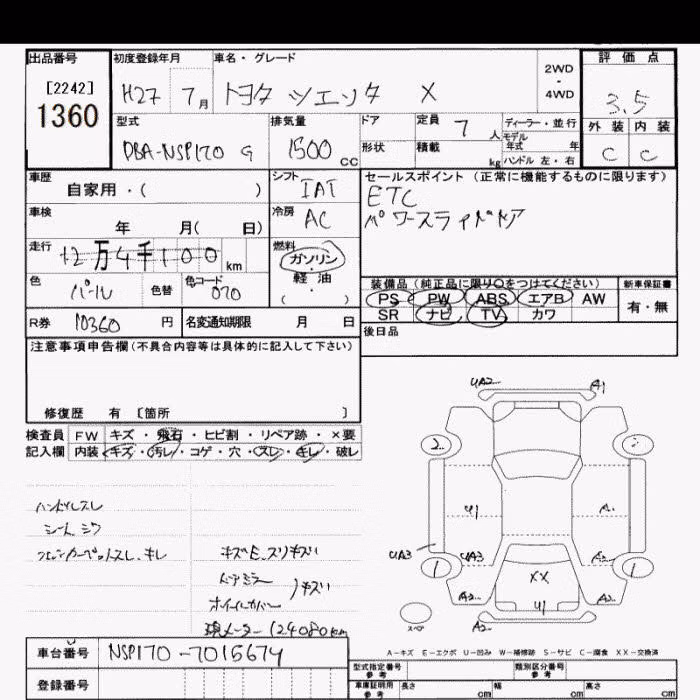 出品番号 初度登録年月 車名・グレード 評価点
[2242] 1360 H27 7月 トヨタ シエンタ X 2WD・4WD 3.5
型式 排気量 ドア 定員 7人 ディーラー・並行 外装 内装
DBA-NSP170 G 1500cc 形状 積載 kg モデル年式 年 ハンドル 左・右 C C
車歴 シフト セールスポイント (正常に機能するものに限ります)
自家用・( ) IAT ETC
車検 冷房 パワースライドドア
年 月( 日) AC
走行 燃料
12万4千100km ガソリン
色 色替 色コード 軽油 装備品 (純正品に限り○をつけてください) 新車保証書
パール 070 ・( ) PS PW ABS エアB AW 有・無
R券 10360円 名変通知期限 月 日 SR ナビ TV カワ
注意事項申告欄(不具合内容等は具体的に記入して下さい) 後日品
修復歴 有 [箇所 ]
検査員 FW キズ・飛石・ヒビ割・リペア跡・×要
記入欄 内装 キズ・汚レ・コゲ・穴・スレ・キレ・破レ
UA2 A1
2 2
U1 A
UA3 UA3 A2
1 1
XX
A2 U1 A2
スペ A2
ハンドルスレ
シート シワ
キズE、スリキズい
ドアミラー
ホイールカバー )キズい
現メーター 124080km
A-キズ E-エクボ U-凹み W-補修跡 S-サビ C-腐食 XX-交換済
車台番号 NSP170-7015674
登録番号
型式指定番号 参考 類別区分番号 参考
車庫証明用 参考 長さ cm 幅 cm 高さ cm